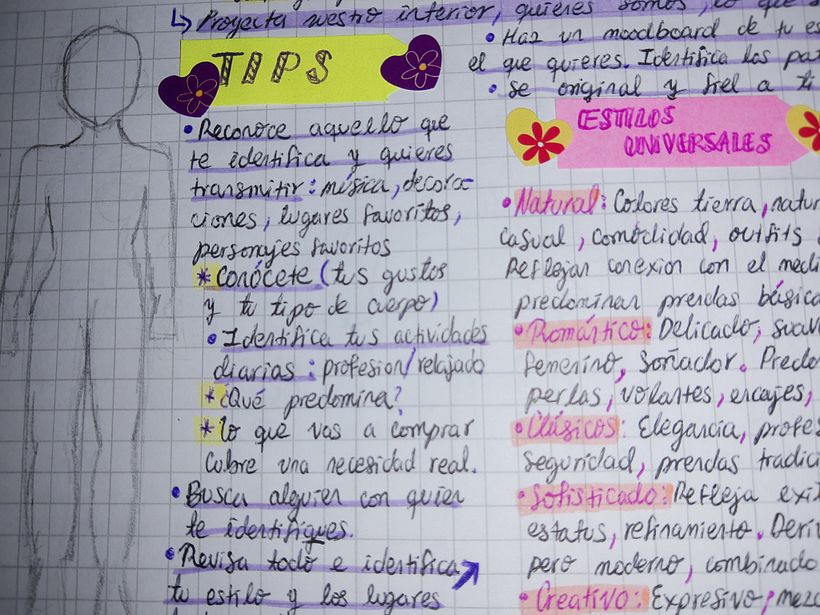 ↳ Proyecta nuestro interior, quieres somos, lo que
TIPS
• Reconoce aquello que
te identifica y quieres
transmitir: música, decora-
ciones, lugares favoritos,
personajes favoritos
* Conócete (tus gustos
y tu tipo de cuerpo)
• Identifica tus actividades
diarias: profesion/relajado
* ¿Qué predomina?
* lo que vas a comprar
cubre una necesidad real.
• Busca alguien con quien
te identifiques.
• Revisa todo e identifica
tu estilo y los lugares
• Haz un moodboard de tu es
el que quieres. Identifica los pa
• Se original y fiel a ti
ESTILOS
UNIVERSALES
• Natural: Colores tierra, natur
casual, comodidad, outfits
Reflejan conexion con el medi
predominan prendas básica
• Romántico: Delicado, suav
femenino, soñador. Predo
perlas, volantes, encajes,
• Clásicos: Elegancia, profes
seguridad, prendas tradici
• Sofisticado: Refleja exi
estatus, refinamiento. Deri
pero moderno, combinado
• Creativo: Expresivo, mezc